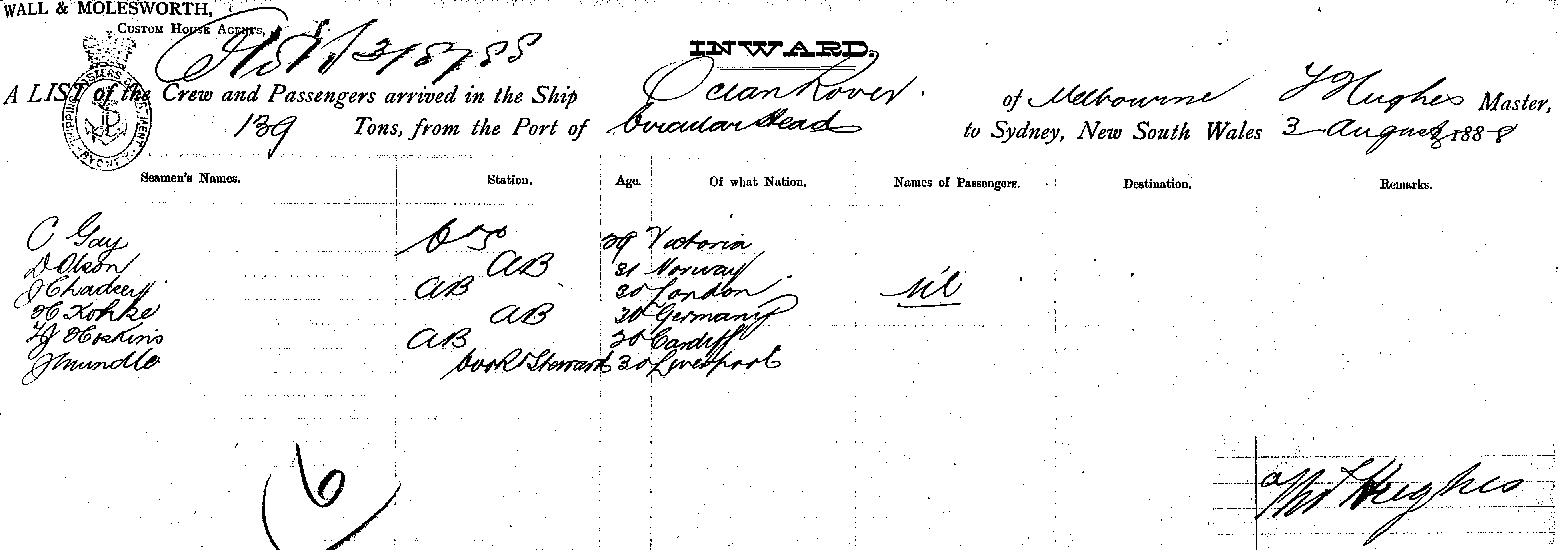 WALL & MOLESWORTH,
CUSTOM HOUSE AGENTS,
3/8/88
INWARD.
A LIST of the Crew and Passengers arrived in the Ship Ocean Rover of Melbourne T Hughes Master,
139 Tons, from the Port of Circular Head to Sydney, New South Wales 3 August 1888
Seamen's Names. Station. Age. Of what Nation. Names of Passengers. Destination. Remarks.
C Gay 39 Victoria
D Olson AB 31 Norway
J Chadsey AB 30 London Nil
H Kohke AB 30 Germany
Hoskins AB 30 Cardiff
J Mundle Cook & Steward 30 Liverpool
6
Hughes